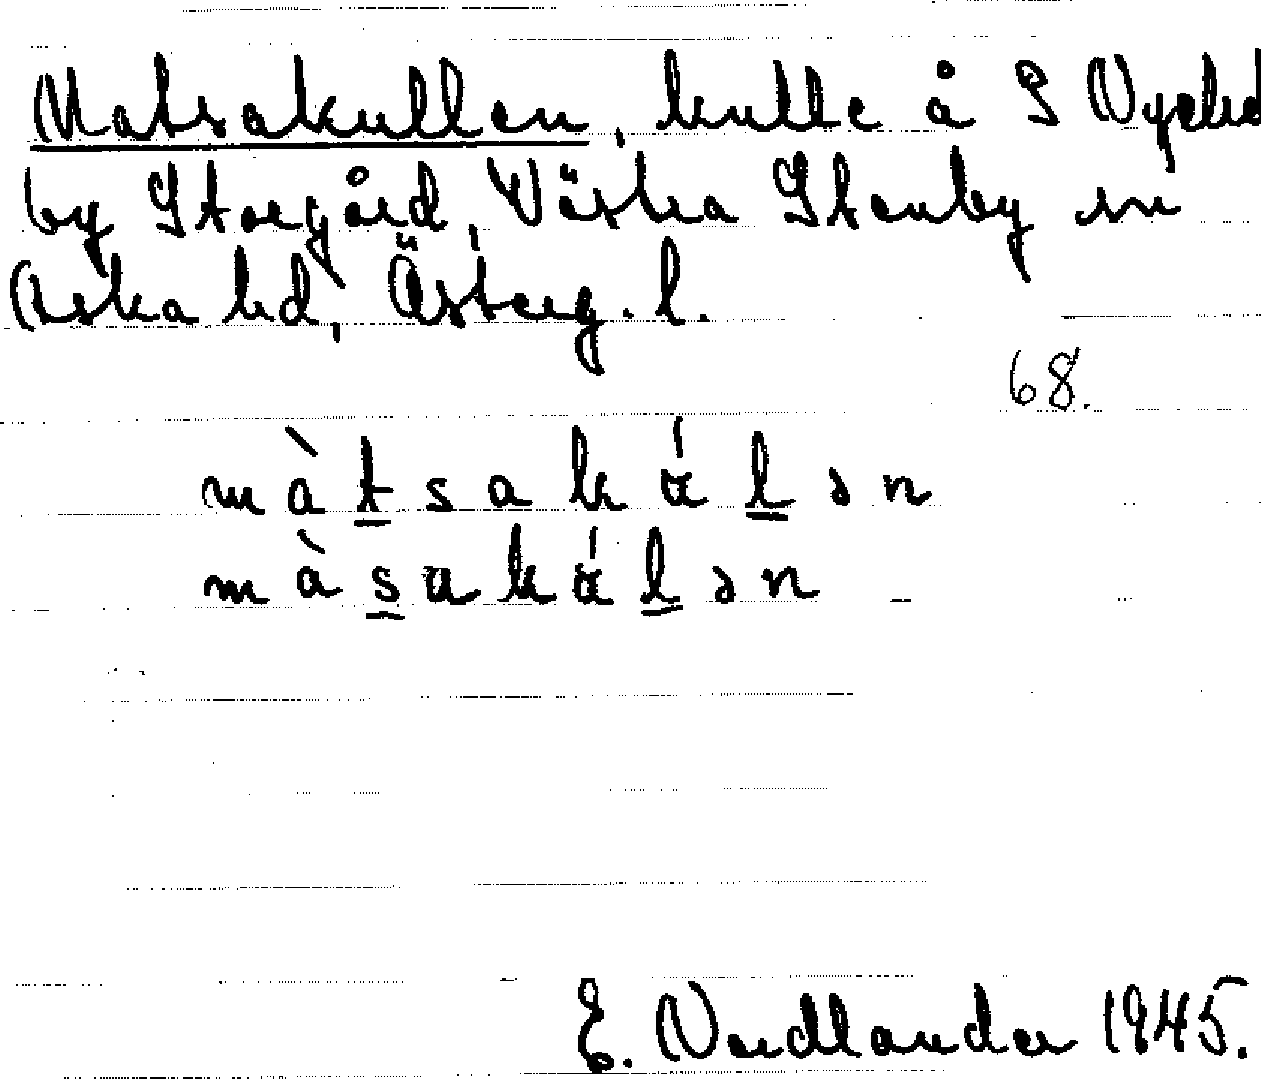 Matsakullen, kulle å S Nycke
by Storgård, Västra Stenby sn
Aska hd, Österg. l.
68.
màtsakάlən
màsakάlən
E. Nordlander 1945.